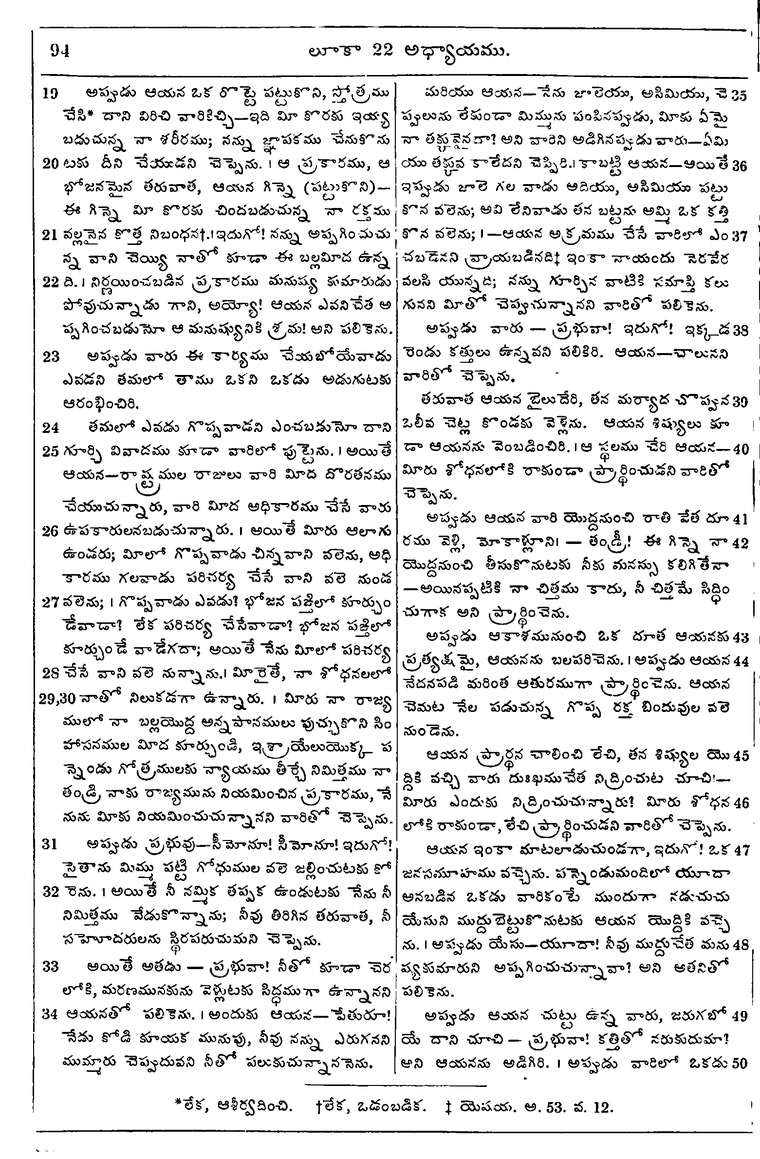 94
లూకా 22 అధ్యాయము.
19 అప్పుడు ఆయన ఒక రొట్టె పట్టుకొని, స్తోత్రము
చేసి* దాని విరిచి వారికిచ్చి—ఇది మీ కొరకు ఇయ్య
బడుచున్న నా శరీరము; నన్ను జ్ఞాపకము చేసుకొను
20 టకు దీని చేయుడని చెప్పెను. । ఆ ప్రకారము, ఆ
భోజనమైన తరువాత, ఆయన గిన్నె (పట్టుకొని)—
ఈ గిన్నె మీ కొరకు చిందబడుచున్న నా రక్తము
21 వల్లనైన కొత్త నిబంధన†.।ఇదుగో! నన్ను అప్పగించుచు
న్న వాని చెయ్యి నాతో కూడా ఈ బల్లమీద ఉన్న
22 ది. । నిర్ణయించబడిన ప్రకారము మనుష్య కుమారుడు
పోవుచున్నాడు గాని, అయ్యో! ఆయన ఎవనిచేత అ
ప్పగించబడుమో ఆ మనుష్యునికి శ్రమ! అని పలికెను.
23 అప్పుడు వారు ఈ కార్యము చేయబోయేవాడు
ఎవడని తమలో తాము ఒకని ఒకడు అడుగుటకు
ఆరంభించిరి.
24 తమలో ఎవడు గొప్పవాడని ఎంచబడుమో దాని
25 గూర్చి వివాదము కూడా వారిలో పుట్టెను. । అయితే
ఆయన—రాష్ట్రముల రాజులు వారి మీద దొరతనము
చేయుచున్నారు, వారి మీద అధికారము చేసే వారు
26 ఉపకారులనబడుచున్నారు. । అయితే మీరు ఆలాగు
ఉండరు; మీలో గొప్పవాడు చిన్నవాని వలెను, అధి
కారము గలవాడు పరిచర్య చేసే వాని వలె నుండ
27 వలెను; । గొప్పవాడు ఎవడు? భోజన పఙ్తిలో కూర్చుం
డేవాడా? లేక పరిచర్య చేసేవాడా? భోజన పఙ్తిలో
కూర్చుండే వాడేగదా; అయితే నేను మీలో పరిచర్య
28 చేసే వాని వలె నున్నాను.। మీరైతే, నా శోధనలలో
29,30 నాతో నిలుకడగా ఉన్నారు. । మీరు నా రాజ్య
ములో నా బల్లయొద్ద అన్నపానములు పుచ్చుకొని సిం
హాసనముల మీద కూర్చుండి, ఇశ్రాయేలుయొక్క ప
న్నెండు గోత్రములకు న్యాయము తీర్చే నిమిత్తము నా
తండ్రి నాకు రాజ్యమును నియమించిన ప్రకారము, నే
నును మీకు నియమించుచున్నానని వారితో చెప్పెను.
31 అప్పుడు ప్రభువు—సీమోనూ! సీమోనూ! ఇదుగో!
సైతాను మిమ్ము పట్టి గోధుముల వలె జల్లించుటకు కో
32 రెను. । అయితే నీ నమ్మిక తప్పక ఉండుటకు నేను నీ
నిమిత్తము వేడుకొన్నాను; నీవు తిరిగిన తరువాత, నీ
సహోదరులను స్థిరపరుచుమని చెప్పెను.
33 అయితే అతడు — ప్రభువా! నీతో కూడా చెర
లోకి, మరణమునకును వెళ్లుటకు సిద్ధముగా ఉన్నానని
34 ఆయనతో పలికెను. । అందుకు ఆయన—పేతురూ!
నేడు కోడి కూయక మునుపు, నీవు నన్ను ఎరుగనని
ముమ్మారు చెప్పుదువని నీతో పలుకుచున్నాననెను.
మరియు ఆయన—నేను జాలెయు, అసిమియు, చె 35
ప్పులును లేకుండా మిమ్మును పంపినప్పుడు, మీకు ఏమై
నా తక్కువైనదా? అని వారిని అడిగినప్పుడు వారు—ఏమి
యు తక్కువ కాలేదని చెప్పిరి.।కాబట్టి ఆయన—అయితే 36
ఇప్పుడు జాలె గల వాడు అదియు, అసిమియు పట్టు
కొన వలెను; అవి లేనివాడు తన బట్టను అమ్మి ఒక కత్తి
కొన వలెను; ।—ఆయన అక్రమము చేసే వారిలో ఎం 37
చబడెనని వ్రాయబడినది‡ ఇంకా నాయందు నెరవేర
వలసి యున్నది; నన్ను గూర్చిన వాటికి సమాప్తి కలు
గునని మీతో చెప్పుచున్నానని వారితో పలికెను.
అప్పుడు వారు — ప్రభువా! ఇదుగో! ఇక్కడ 38
రెండు కత్తులు ఉన్నవని పలికిరి. ఆయన—చాలునని
వారితో చెప్పెను.
తరువాత ఆయన బైలుదేరి, తన మర్యాద చొప్పున 39
ఒలీవ చెట్ల కొండకు వెళ్లెను. ఆయన శిష్యులు కూ
డా ఆయనను వెంబడించిరి.।ఆ స్థలము చేరి ఆయన— 40
మీరు శోధనలోకి రాకుండా ప్రార్థించుడని వారితో
చెప్పెను.
అప్పుడు ఆయన వారి యొద్దనుంచి రాతి వేత దూ 41
రము వెళ్లి, మోకాళ్లూని। — తండ్రీ! ఈ గిన్నె నా 42
యొద్దనుంచి తీసుకొనుటకు నీకు మనస్సు కలిగితేనా
—అయినప్పటికి నా చిత్తము కాదు, నీ చిత్తమే సిద్ధిం
చుగాక అని ప్రార్థించెను.
అప్పుడు ఆకాశమునుంచి ఒక దూత ఆయనకు 43
ప్రత్యక్షమై, ఆయనను బలపరిచెను. । అప్పుడు ఆయన 44
వేదనపడి మరింత ఆతురముగా ప్రార్థించెను. ఆయన
చెమట నేల పడుచున్న గొప్ప రక్త బిందువుల వలె
నుండెను.
ఆయన ప్రార్థన చాలించి లేచి, తన శిష్యుల యొ 45
ద్దికి వచ్చి వారు దుఃఖముచేత నిద్రించుట చూచి।—
మీరు ఎందుకు నిద్రించుచున్నారు? మీరు శోధన 46
లోకి రాకుండా, లేచి ప్రార్థించుడని వారితో చెప్పెను.
ఆయన ఇంకా మాటలాడుచుండగా, ఇదుగో! ఒక 47
జనసమూహము వచ్చెను. పన్నెండుమందిలో యూదా
అనబడిన ఒకడు వారికంటే ముందుగా నడుచుచు
యేసుని ముద్దుబెట్టుకొనుటకు ఆయన యొద్దికి వచ్చె
ను. । అప్పుడు యేసు—యూదా! నీవు ముద్దుచేత మను 48
ష్యకుమారుని అప్పగించుచున్నావా? అని అతనితో
పలికెను.
అప్పుడు ఆయన చుట్టు ఉన్న వారు, జరుగబో 49
యే దాని చూచి — ప్రభువా! కత్తితో నరుకుదుమా?
అని ఆయనను అడిగిరి. । అప్పుడు వారిలో ఒకడు 50
*లేక, ఆశీర్వదించి. †లేక, ఒడంబడిక. ‡ యెషయ. అ. 53. వ. 12.